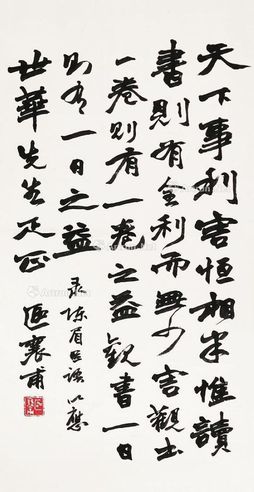 天下事利害恒相半惟讀
書則有全利而無少害觀書
一卷則有一卷之益觀書一日
則有一日之益 录陈眉公語以應
世華先生疋正 區襄甫